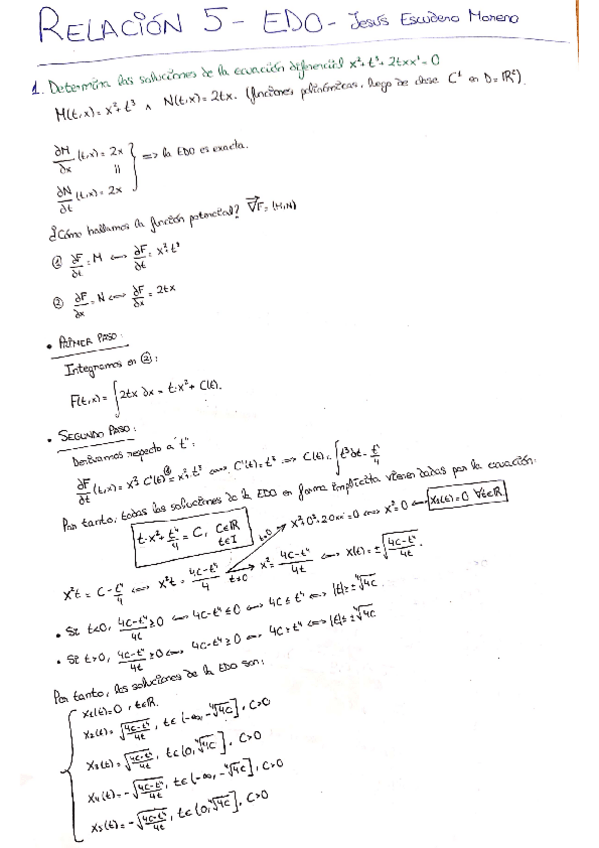 RELACIÓN 5 - EDO - Jesús Escudero Moreno
1. Determina las soluciones de la ecuación diferencial x²+t³+2txx'=0
M(t,x)=x²+t³ ∧ N(t,x)=2tx. (funciones polinómicas, luego de clase C¹ en D=ℝ²).
∂M/∂x (t,x)=2x
‖
∂N/∂t (t,x)=2x
=> la EDO es exacta.
¿Cómo hallamos la función potencial? ∇F=(M,N)
① ∂F/∂t=M <=> ∂F/∂t=x²+t³
② ∂F/∂x=N <=> ∂F/∂x=2tx
• PRIMER PASO:
Integramos en ②:
F(t,x)=∫2tx ∂x = t·x²+C(t).
• SEGUNDO PASO:
Derivamos respecto a "t":
∂F/∂t (t,x)=x²+C'(t)=x²+t³ <=> C'(t)=t³ => C(t)=∫t³dt=t⁴/4
Por tanto, todas las soluciones de la EDO en forma implícita vienen dadas por la ecuación:
t·x²+t⁴/4=C, C∈ℝ t∈I
t=0 x²+0³+2·0xx'=0 <=> x²=0 <=> x₁(t)=0 ∀t∈ℝ.
x²t=C-t⁴/4 <=> x²t=4C-t⁴/4 t≠0 x²=4C-t⁴/4t <=> x(t)=±√(4C-t⁴/4t).
• Si t<0, 4C-t⁴/4t≥0 <=> 4C-t⁴≤0 <=> 4C≤t⁴ <=> |t|≥±⁴√4C
• Si t>0, 4C-t⁴/4t≥0 <=> 4C-t⁴≥0 <=> 4C≥t⁴ <=> |t|≤±⁴√4C
Por tanto, las soluciones de la EDO son:
x₁(t)=0, t∈ℝ.
x₂(t)=√(4C-t⁴/4t), t∈(-∞,-⁴√4C], C>0
x₃(t)=√(4C-t⁴/4t), t∈(0,⁴√4C], C>0
x₄(t)=-√(4C-t⁴/4t), t∈(-∞,-⁴√4C], C>0
x₅(t)=-√(4C-t⁴/4t), t∈(0,⁴√4C], C>0